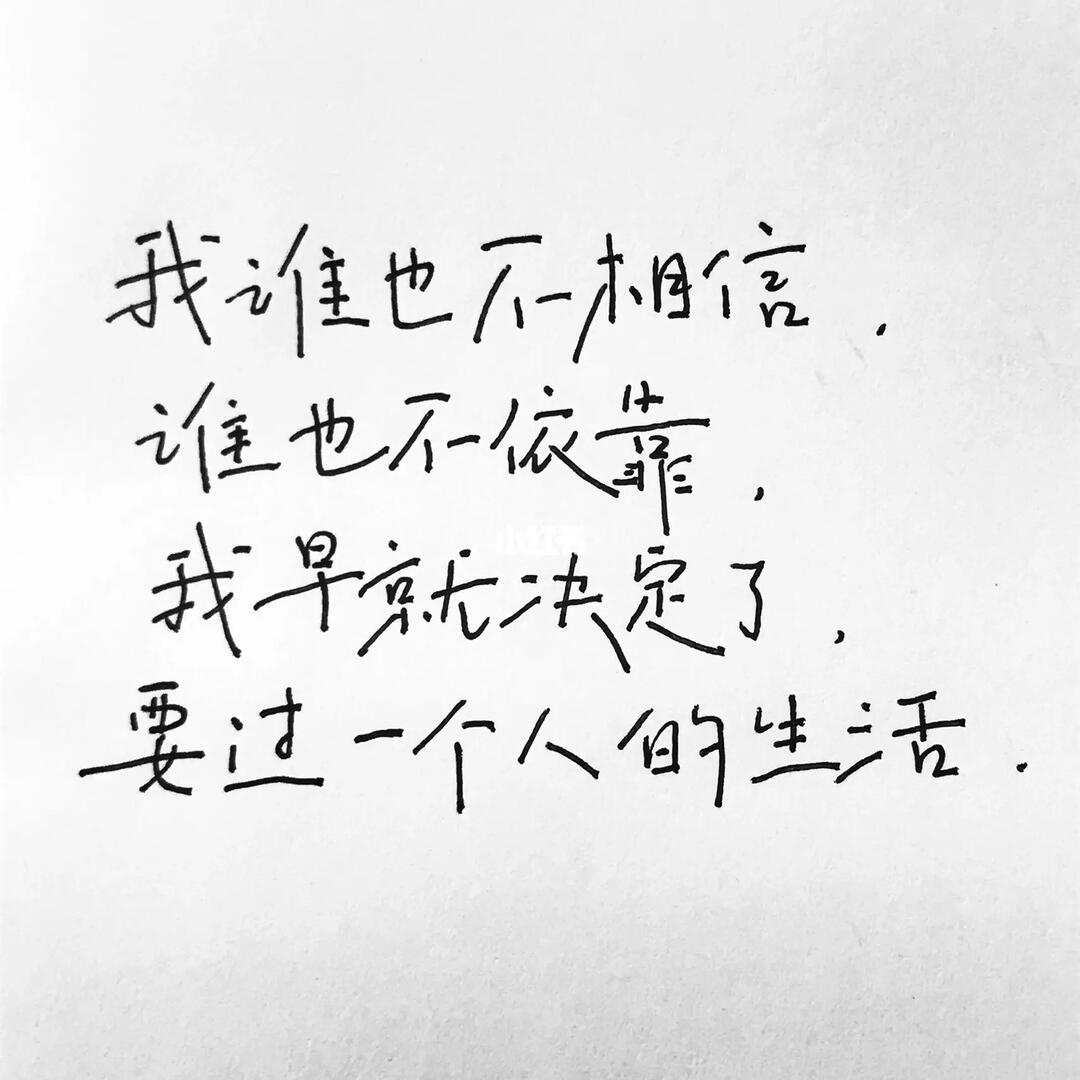 我谁也不相信.
谁也不依靠,
小红书
我早就决定了,
要过一个人的生活.